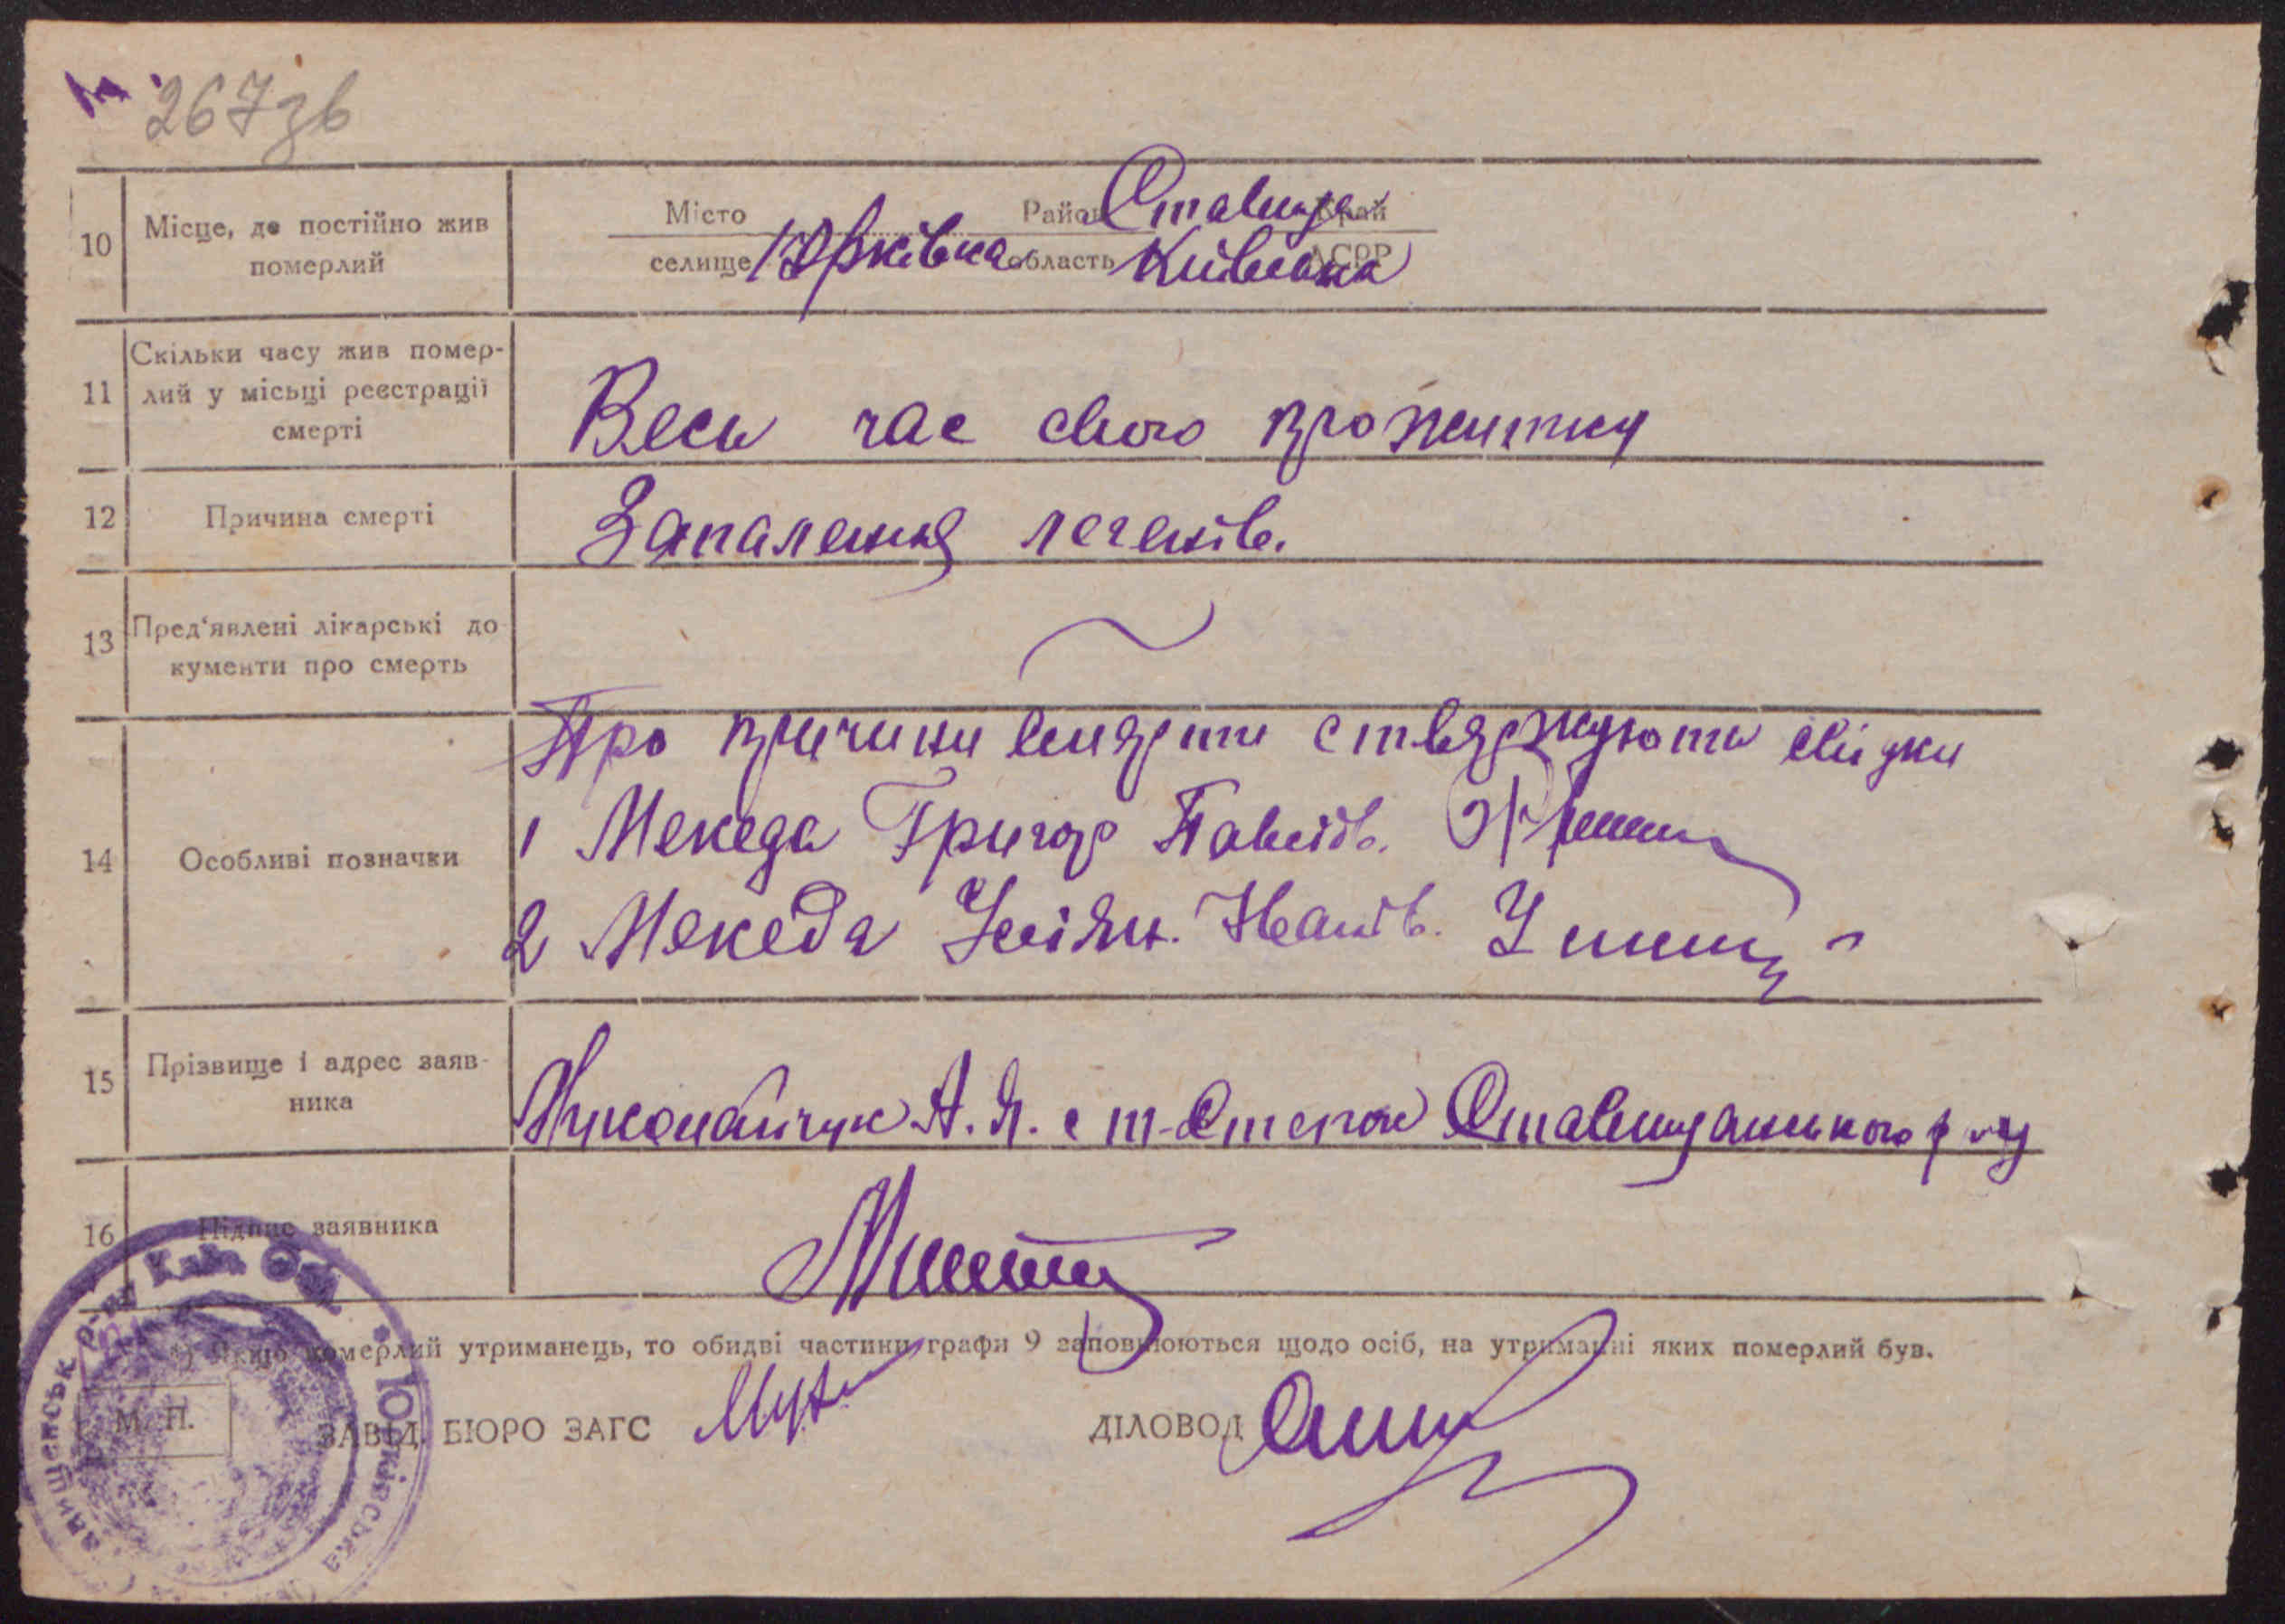 267зв
10 Місце, де постійно жив померлий
Місто Район Ставище Край
селище Юрківка область Київська АСРР
11 Скільки часу жив помер-
лий у місьці реєстрації
смерті
Весь час свого прожитку
12 Причина смерті
Запалення легенів.
13 Пред'явлені лікарські до
кументи про смерть
14 Особливі позначки
Про причини смерти стверджують свідки
1 Мекеда Григор Павлов.
2 Мекеда Уліян. Іванів.
15 Прізвище і адрес заяв-
ника
Миколайчук А. Я. Ставищанського р-ну
16 Підпис заявника
*) Якщо померлий утриманець, то обидві частини графи 9 заповнюються щодо осіб, на утриманні яких померлий був.
М. П.
ЗАВІД. БЮРО ЗАГС
ДІЛОВОД
Юрківська